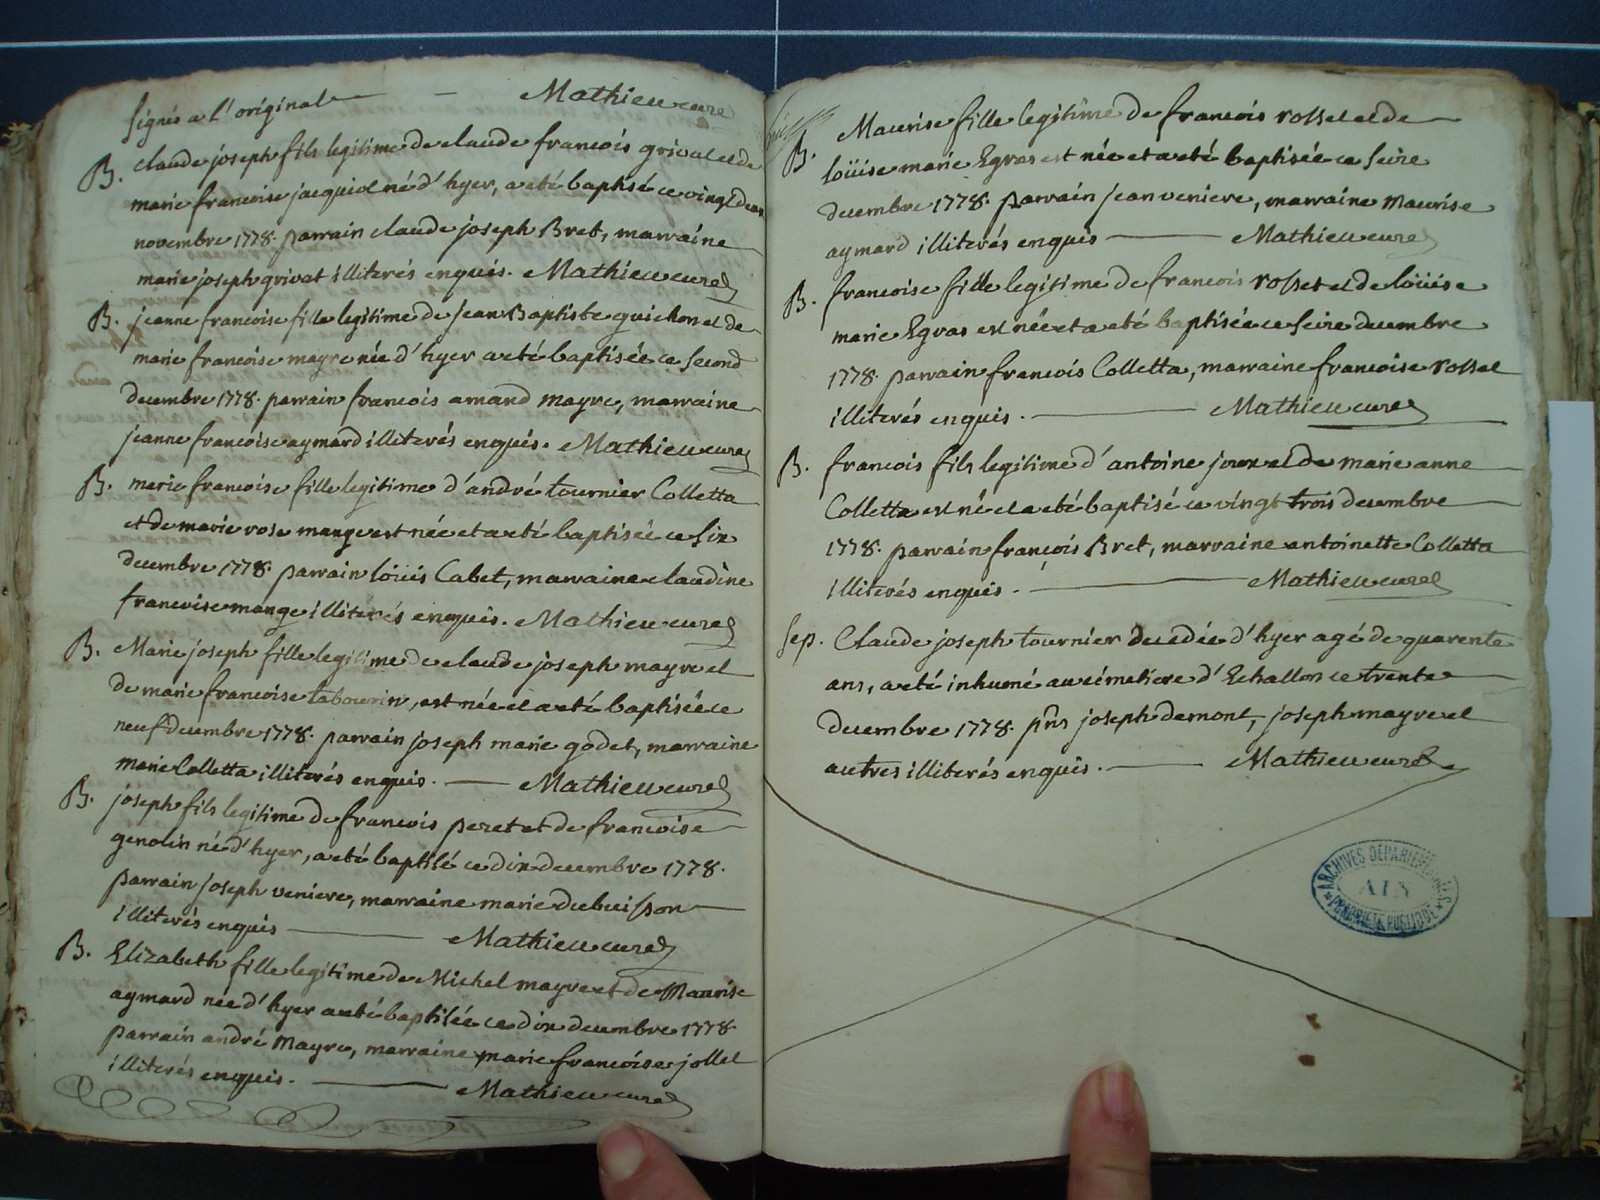 signés a l'original — Mathieu curé
B. claude joseph fils legitime de claude francois grivat et de
marie francoise jacquiot né d'hyer, a eté baptisé ce vingt deux
novembre 1778. parrain claude joseph Bret, marraine
marie joseph grivat illiterés enquis. Mathieu curé
B. jeanne francoise fille legitime de jean Baptiste guichon et de
marie francoise mayre née d'hyer a eté baptisée ce second
decembre 1778. parrain francois amand mayre, marraine
jeanne francoise aymard illiterés enquis. Mathieu curé
B. marie francoise fille legitime d'andré tournier Colletta
et de marie rose mange est née et a eté baptisée ce six
decembre 1778. parrain loüis Cabet, marraine claudine
francoise mange illiterés enquis. Mathieu curé
B. Marie joseph fille legitime de claude joseph mayre et
de marie francoise tabourin, est née et a eté baptisée ce
neuf decembre 1778. parrain joseph marie godet, marraine
marie Colletta illiterés enquis. — Mathieu curé
B. joseph fils legitime de francois peret et de francoise
genolin né d'hyer, a eté baptisé ce dix decembre 1778.
parrain joseph veniere, marraine marie dubuisson
illiterés enquis — Mathieu curé
B. Elizabeth fille legitime de Michel mayre et de Maurise
aymard née d'hyer a eté baptisée ce dix decembre 1778.
parrain andré Mayre, marraine marie francoise jollet
illiterés enquis. — Mathieu curé
B. Maurise fille legitime de francois rosset et de
loüise marie Egras est née et a eté baptisée ce seize
decembre 1778. parrain jean veniere, marraine Maurise
aymard illiterés enquis — Mathieu curé
B. francoise fille legitime de francois rosset et de loüise
marie Egras est née et a eté baptisée ce seize decembre
1778. parrain francois Colletta, marraine francoise rosset
illiterés enquis. — Mathieu curé
B. francois fils legitime d'antoine joux et de marie anne
Colletta est né et a eté baptisé ce vingt trois decembre
1778. parrain françois Bret, marraine antoinette Colletta
illiterés enquis. — Mathieu curé
sep. Claude joseph tournier decedée d'hyer agé de quarente
ans, a eté inhumé au cimetiere d'Echallon ce trente
decembre 1778. pns joseph demont, joseph mayre et
autres illiterés enquis. — Mathieu curé
ARCHIVES DÉPARTEMENTALES
AIN
PROPRIÉTÉ PUBLIQUE